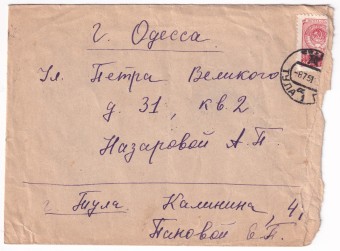 г. Одесса.
Ул. Петра Великого
д. 31, кв. 2
Назаровой А. П.
г. Тула. Калинина, 4,
Пановой Е. П.
ТУЛА